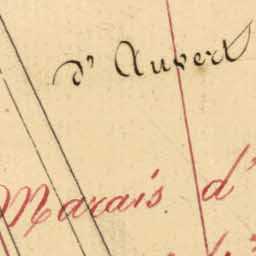 d' Auvert
Marais d'